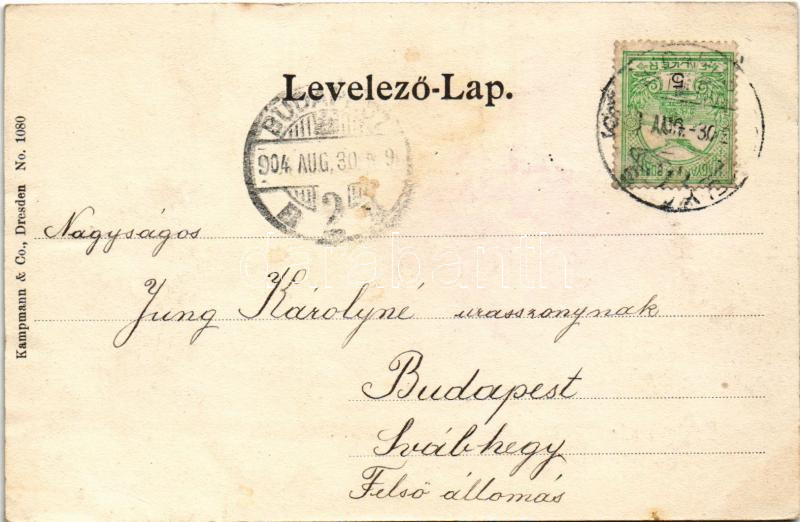 Levelező-Lap.
BUDAPEST
904 AUG. 30
2
AUG. 30
5
Nagyságos
Jung Károlyné urasszonynak
Budapest
Svábhegy
Felső állomás
Kampmann & Co., Dresden No. 1080
darabanth